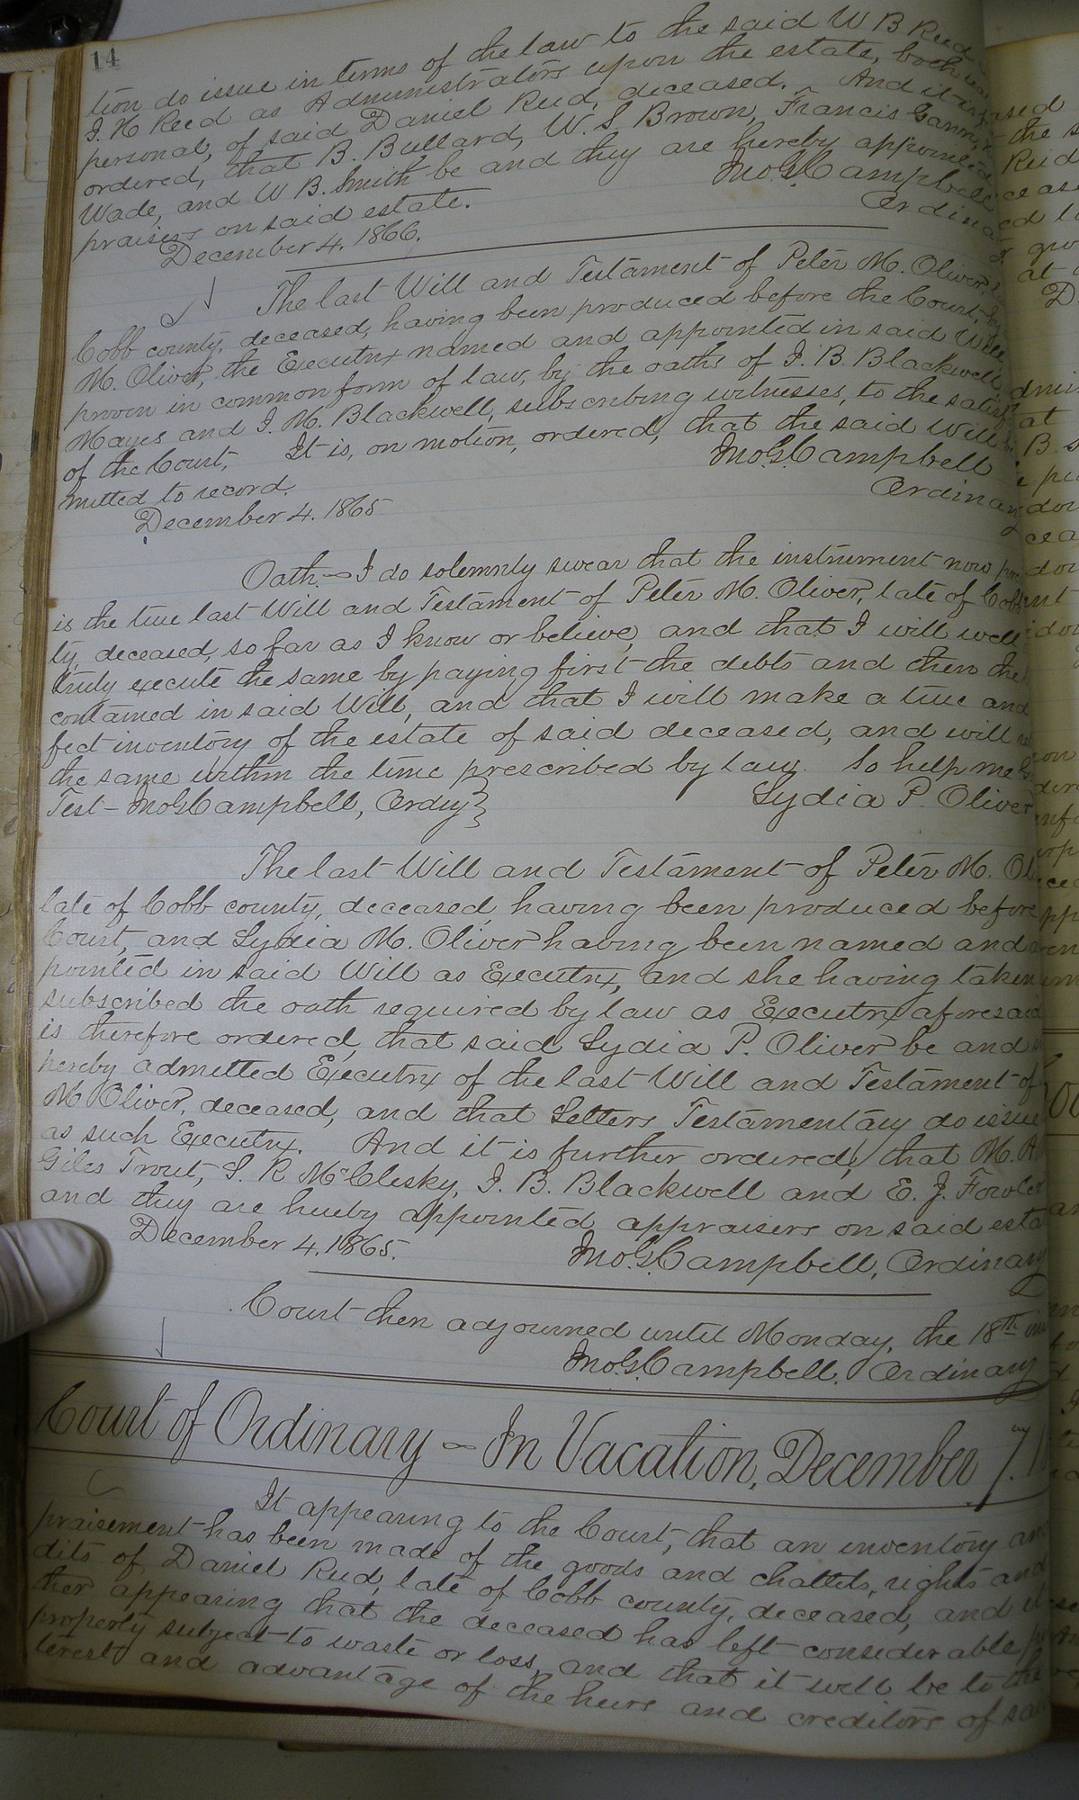 14
tion do issue in terms of the law to the said W B Reid
J. N Reed as Administrators upon the estate, both
personal, of said Daniel Reid, deceased. And it is
ordered, that B. Bullard, W. S Brown, Francis
Wade, and W B. Smith be and they are hereby appointed
praisers on said estate. Jno. G. Campbell
December 4. 1866. Ordinary
The last Will and Testament of Peter M. Oliver,
Cobb county, deceased, having been produced before the Court, by
M. Oliver, the Executrix named and appointed in said Will
proven in common form of law, by the oaths of J. B. Blackwell,
Mayes and J. M. Blackwell, subscribing witnesses, to the satisf
of the Court, It is, on motion, ordered, that the said Will be
mitted to record. Jno. G. Campbell
December 4. 1865 Ordinary
Oath,—I do solemnly swear that the instrument now
is the true last Will and Testament of Peter M. Oliver, late of Cobb
ty, deceased, so far as I know or believe, and that I will well
truly execute the same by paying first the debts and then the
contained in said Will, and that I will make a true and
fect inventory of the estate of said deceased, and will
the same within the time prescribed by law. So help me
Test - Jno. G. Campbell, Ordy} Lydia P. Oliver
The last Will and Testament of Peter M. Ol
late of Cobb county, deceased, having been produced before
Court, and Lydia M. Oliver having been named and a
pointed in said Will as Executrix, and she having taken
subscribed the oath required by law as Executrix aforesaid
is therefore ordered, that said Lydia P. Oliver be and s
hereby admitted Executrix of the last Will and Testament of
M Oliver, deceased, and that Letters Testamentary do issue
as such Executrix. And it is further ordered, that M. A
Giles Trout, S. R McClesky, J. B. Blackwell and E. J. Fowler
and they are hereby appointed appraisers on said esta
December 4. 1865. Jno. G. Campbell, Ordinary
Court then adjourned until Monday, the 18th
Jno. G. Campbell. Ordinary
Court of Ordinary - In Vacation, December 7. 1
It appearing to the Court, that an inventory and
praisement has been made of the goods and chattels, rights and
dits of Daniel Reid, late of Cobb county, deceased, and it
ther appearing that the deceased has left considerable
property subject to waste or loss, and that it will be to the
terest and advantage of the heirs and creditors of sai